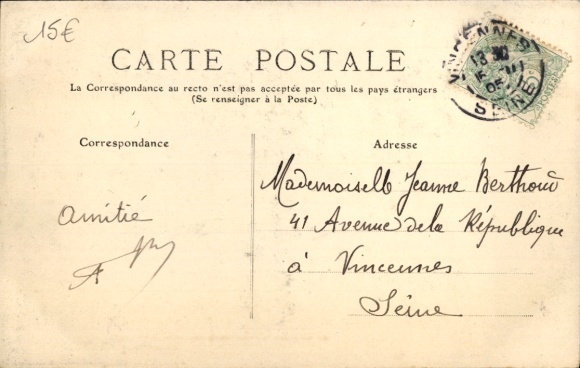 15€
CARTE POSTALE
La Correspondance au recto n'est pas acceptée par tous les pays étrangers
(Se renseigner à la Poste)
VINCENNES
13 30
05
SEINE
Correspondance
Adresse
Amitié
Mademoiselle Jeanne Berthoud
41 Avenue de la République
à Vincennes
Seine